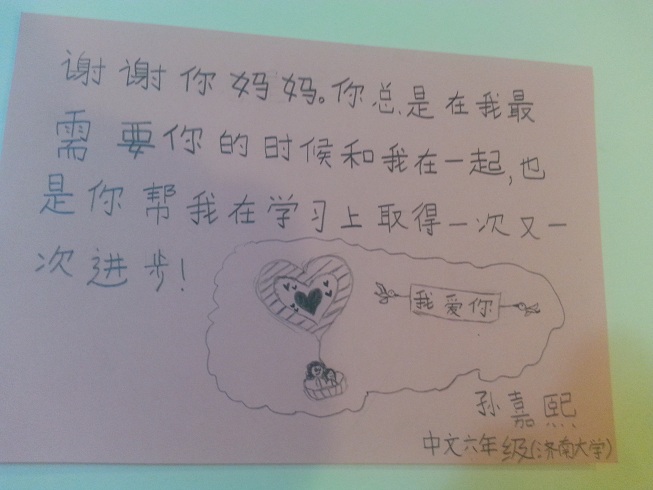 谢谢你妈妈。你总是在我最
需要你的时候和我在一起,也
是你帮我在学习上取得一次又一
次进步!
我爱你
孙嘉熙
中文六年级(济南大学)